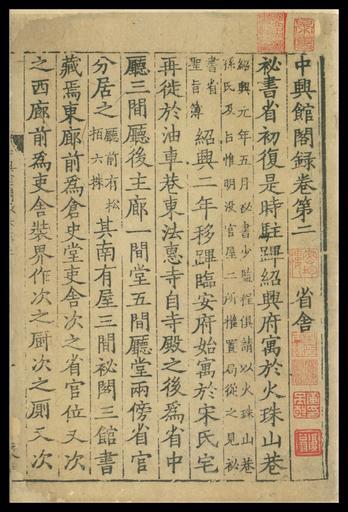 中興館閣錄卷第二
省舍
祕書省初復是時駐蹕紹興府寓於火珠山巷
紹興元年五月祕書少監程俱請以火珠山巷
孫氏及呂惟明没官屋二所權置局從之見祕
書省
聖旨簿
紹興二年移蹕臨安府始寓於宋氏宅
再徙於油車巷東法惠寺自寺殿之後爲省中
廳三間廳後主廊一間堂五間廳堂兩傍省官
分居之
廳前有松
栢六株
其南有屋三間祕閣三館書
藏焉東廊前爲倉史堂吏舍次之省官位又次
之西廊前爲吏舍裝界作次之厨次之厠又次